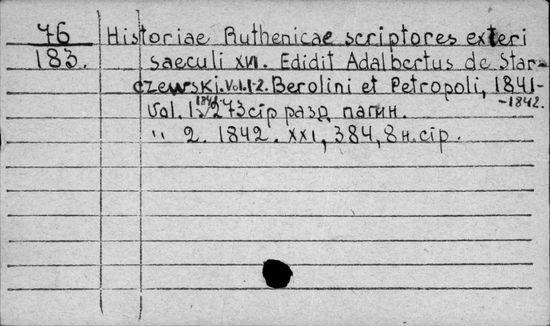 76 Historiae Ruthenicae scriptores exteri
183. saeculi XVI. Edidit Adalbertus de Star-
czewski. Vol. 1-2. Berolini et Petropoli, 1841-
-1842.
Vol. 1. 1841. 273 стр разд. пагин.
" 2. 1842. XXI, 384, 8 н. стр.